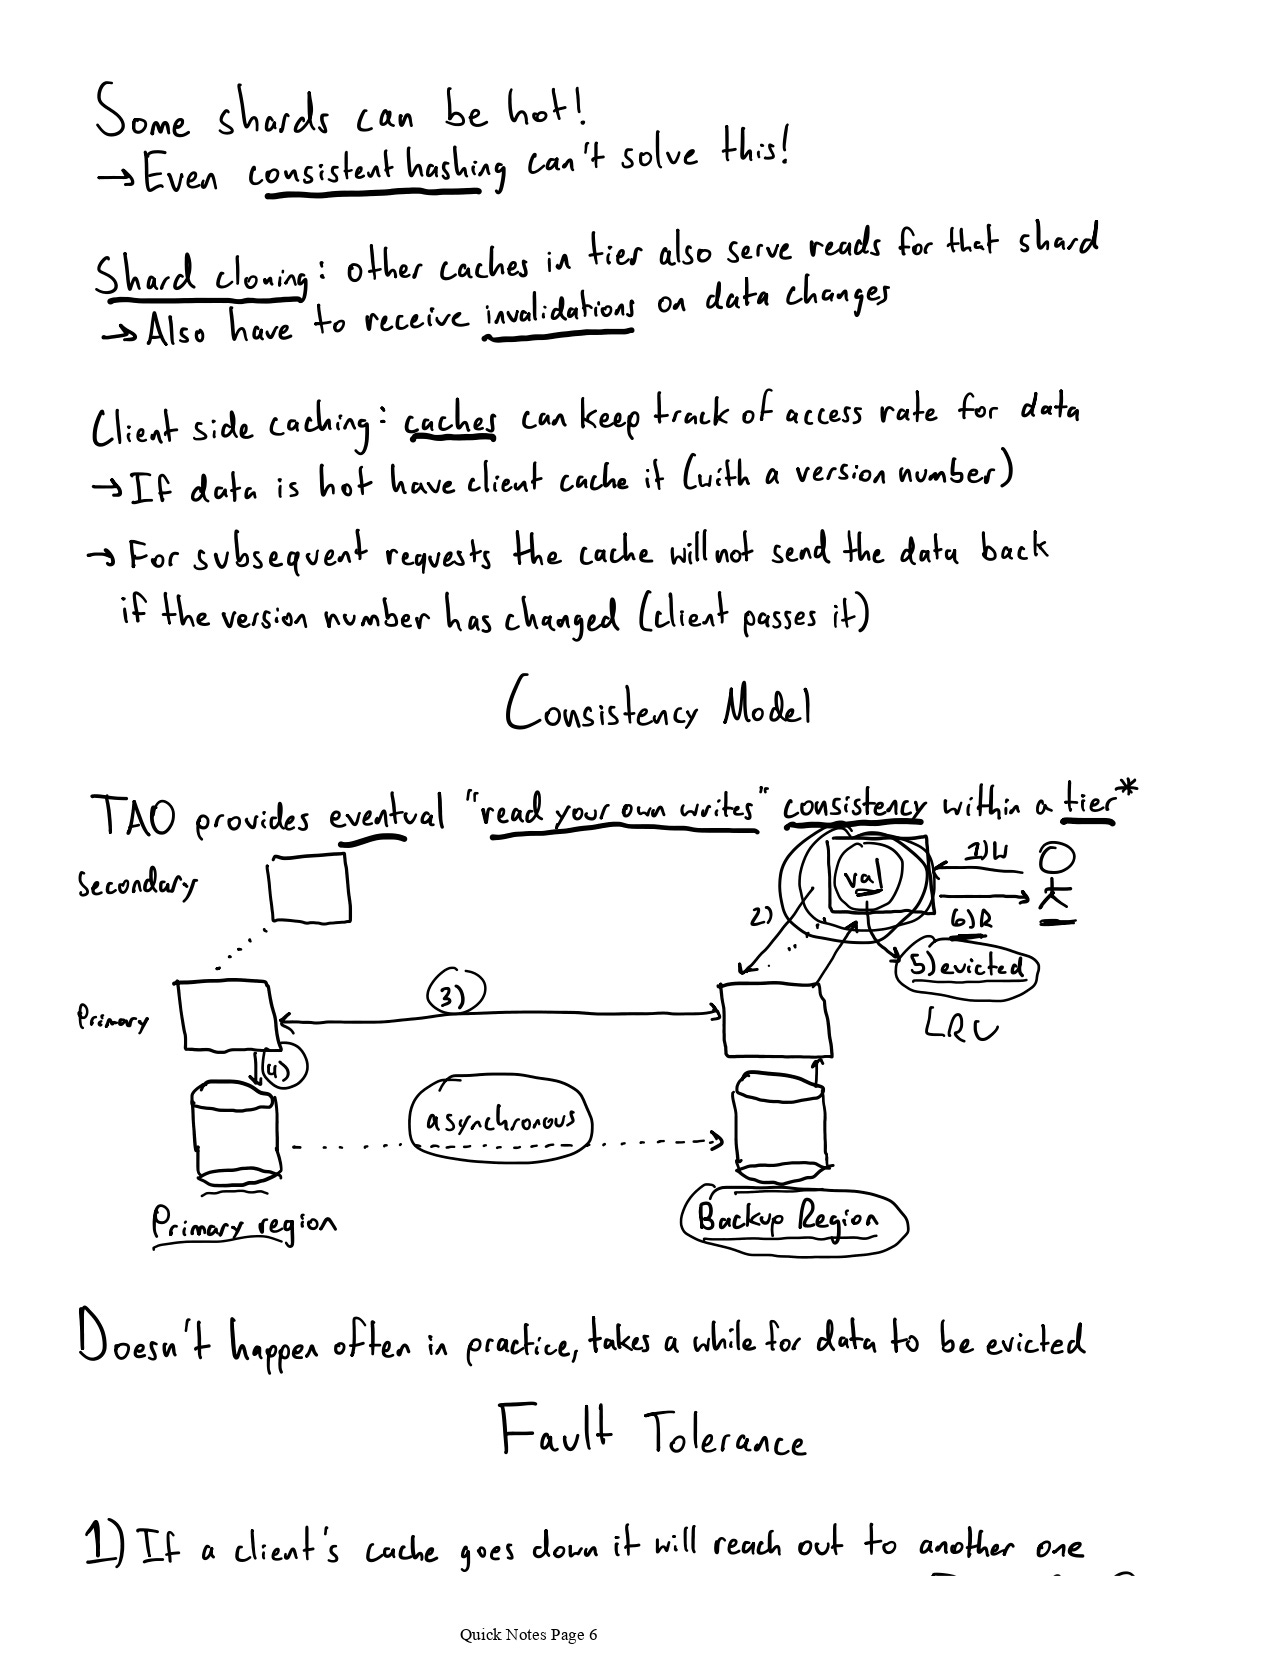 Some shards can be hot!
→ Even consistent hashing can't solve this!
Shard cloning: other caches in tier also serve reads for that shard
→ Also have to receive invalidations on data changes
Client side caching: caches can keep track of access rate for data
→ If data is hot have client cache it (with a version number)
→ For subsequent requests the cache will not send the data back
if the version number has changed (client passes it)
Consistency Model
TAO provides eventual "read your own writes" consistency within a tier*
Secondary
val
1) W
2)
6) R
5) evicted
LRU
Primary
3)
4)
asynchronous
Primary region
Backup Region
Doesn't happen often in practice, takes a while for data to be evicted
Fault Tolerance
1) If a client's cache goes down it will reach out to another one
Quick Notes Page 6